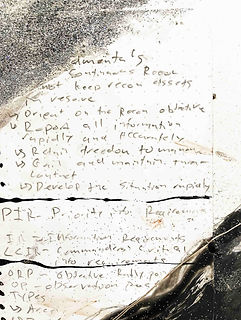 damentals
Continuous Recon
not keep recon assets
in reserve
↳ Orient on the Recon objective
↳ Report all information
rapidly and accurately
↳ Retain freedom to maneuver
↳ Gain and maintain
contact
↳ Develop the situation rapidly
PIR - Priority info Requirements
IR → Information Requirements
CCIR - Commanders Critical
info requirements
ORP - objective Rally point
OP - observation
TYPES